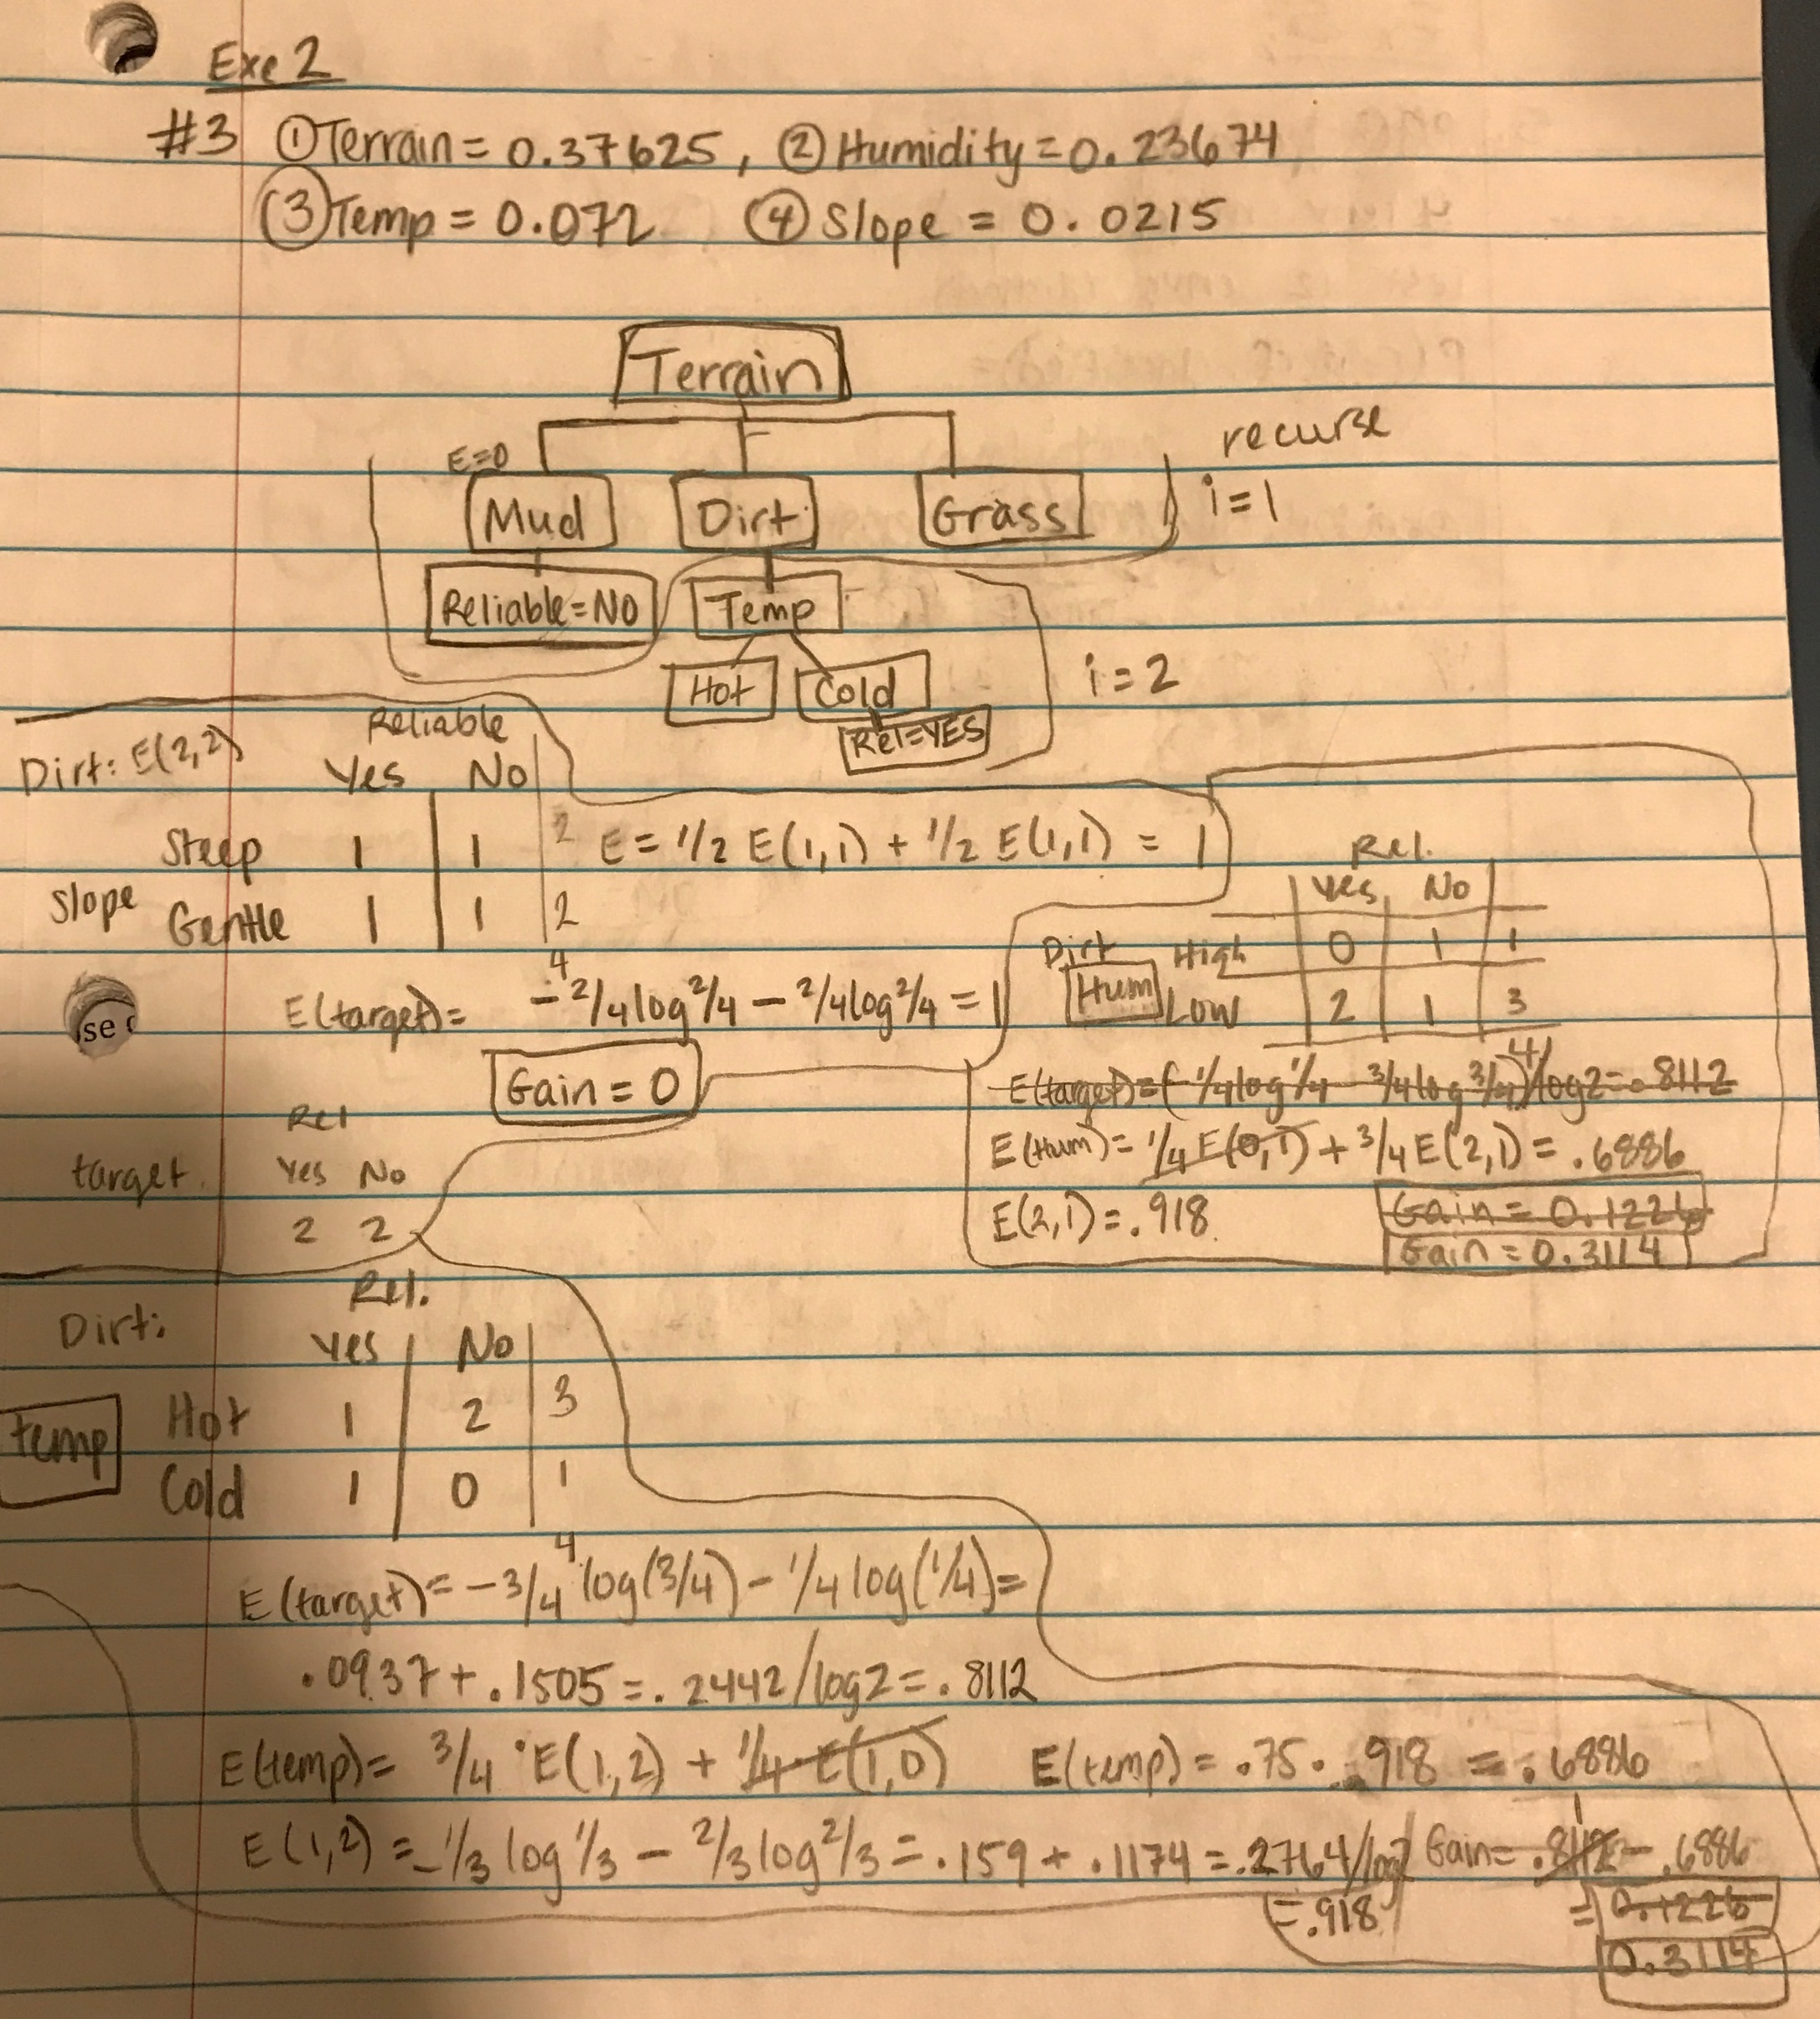 Exe 2
#3 ① Terrain = 0.37625, ② Humidity = 0.23674
③ Temp = 0.072 ④ Slope = 0.0215
Terrain
recurse
E=0
Mud Dirt Grass i=1
Reliable=NO Temp
Hot Cold i=2
Rel=YES
Dirt: E(2,2) Reliable
Yes No
Steep 1 1 2 E = 1/2 E(1,1) + 1/2 E(1,1) = 1
Slope Gentle 1 1 2
4
E(target)= -2/4 log 2/4 - 2/4 log 2/4 = 1
Gain = 0
Rel
target. Yes No
2 2
Rel.
Yes No
Dirt High 0 1 1
Hum Low 2 1 3
4
E(target)=(-1/4 log 1/4 - 3/4 log 3/4)/log2=.8112
E(Hum)= 1/4 E(0,1) + 3/4 E(2,1) = .6886
E(2,1) = .918. Gain = 0.1226
Gain = 0.3114
Dirt: Rel.
Yes No
Hot 1 2 3
temp
Cold 1 0 1
4
E(target)= -3/4 log(3/4) - 1/4 log(1/4)=
.0937 + .1505 = .2442/log2 = .8112
E(temp)= 3/4 · E(1,2) + 1/4 · E(1,0) E(temp) = .75 · .918 = .6886
E(1,2) = -1/3 log 1/3 - 2/3 log 2/3 = .159 + .1174 = .2764/log2
= .918
Gain = .8112 1 - .6886
= 0.1226
0.3114
se